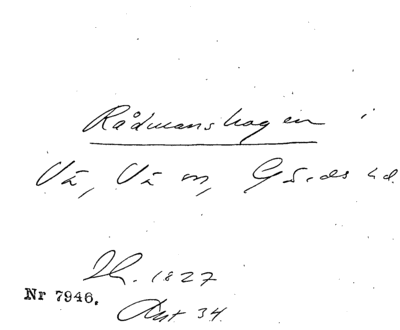 Rådmanshagen i
Vä, Vä sn, Gärds hd.
Sk. 1827
Nr 7946.
Akt 34.